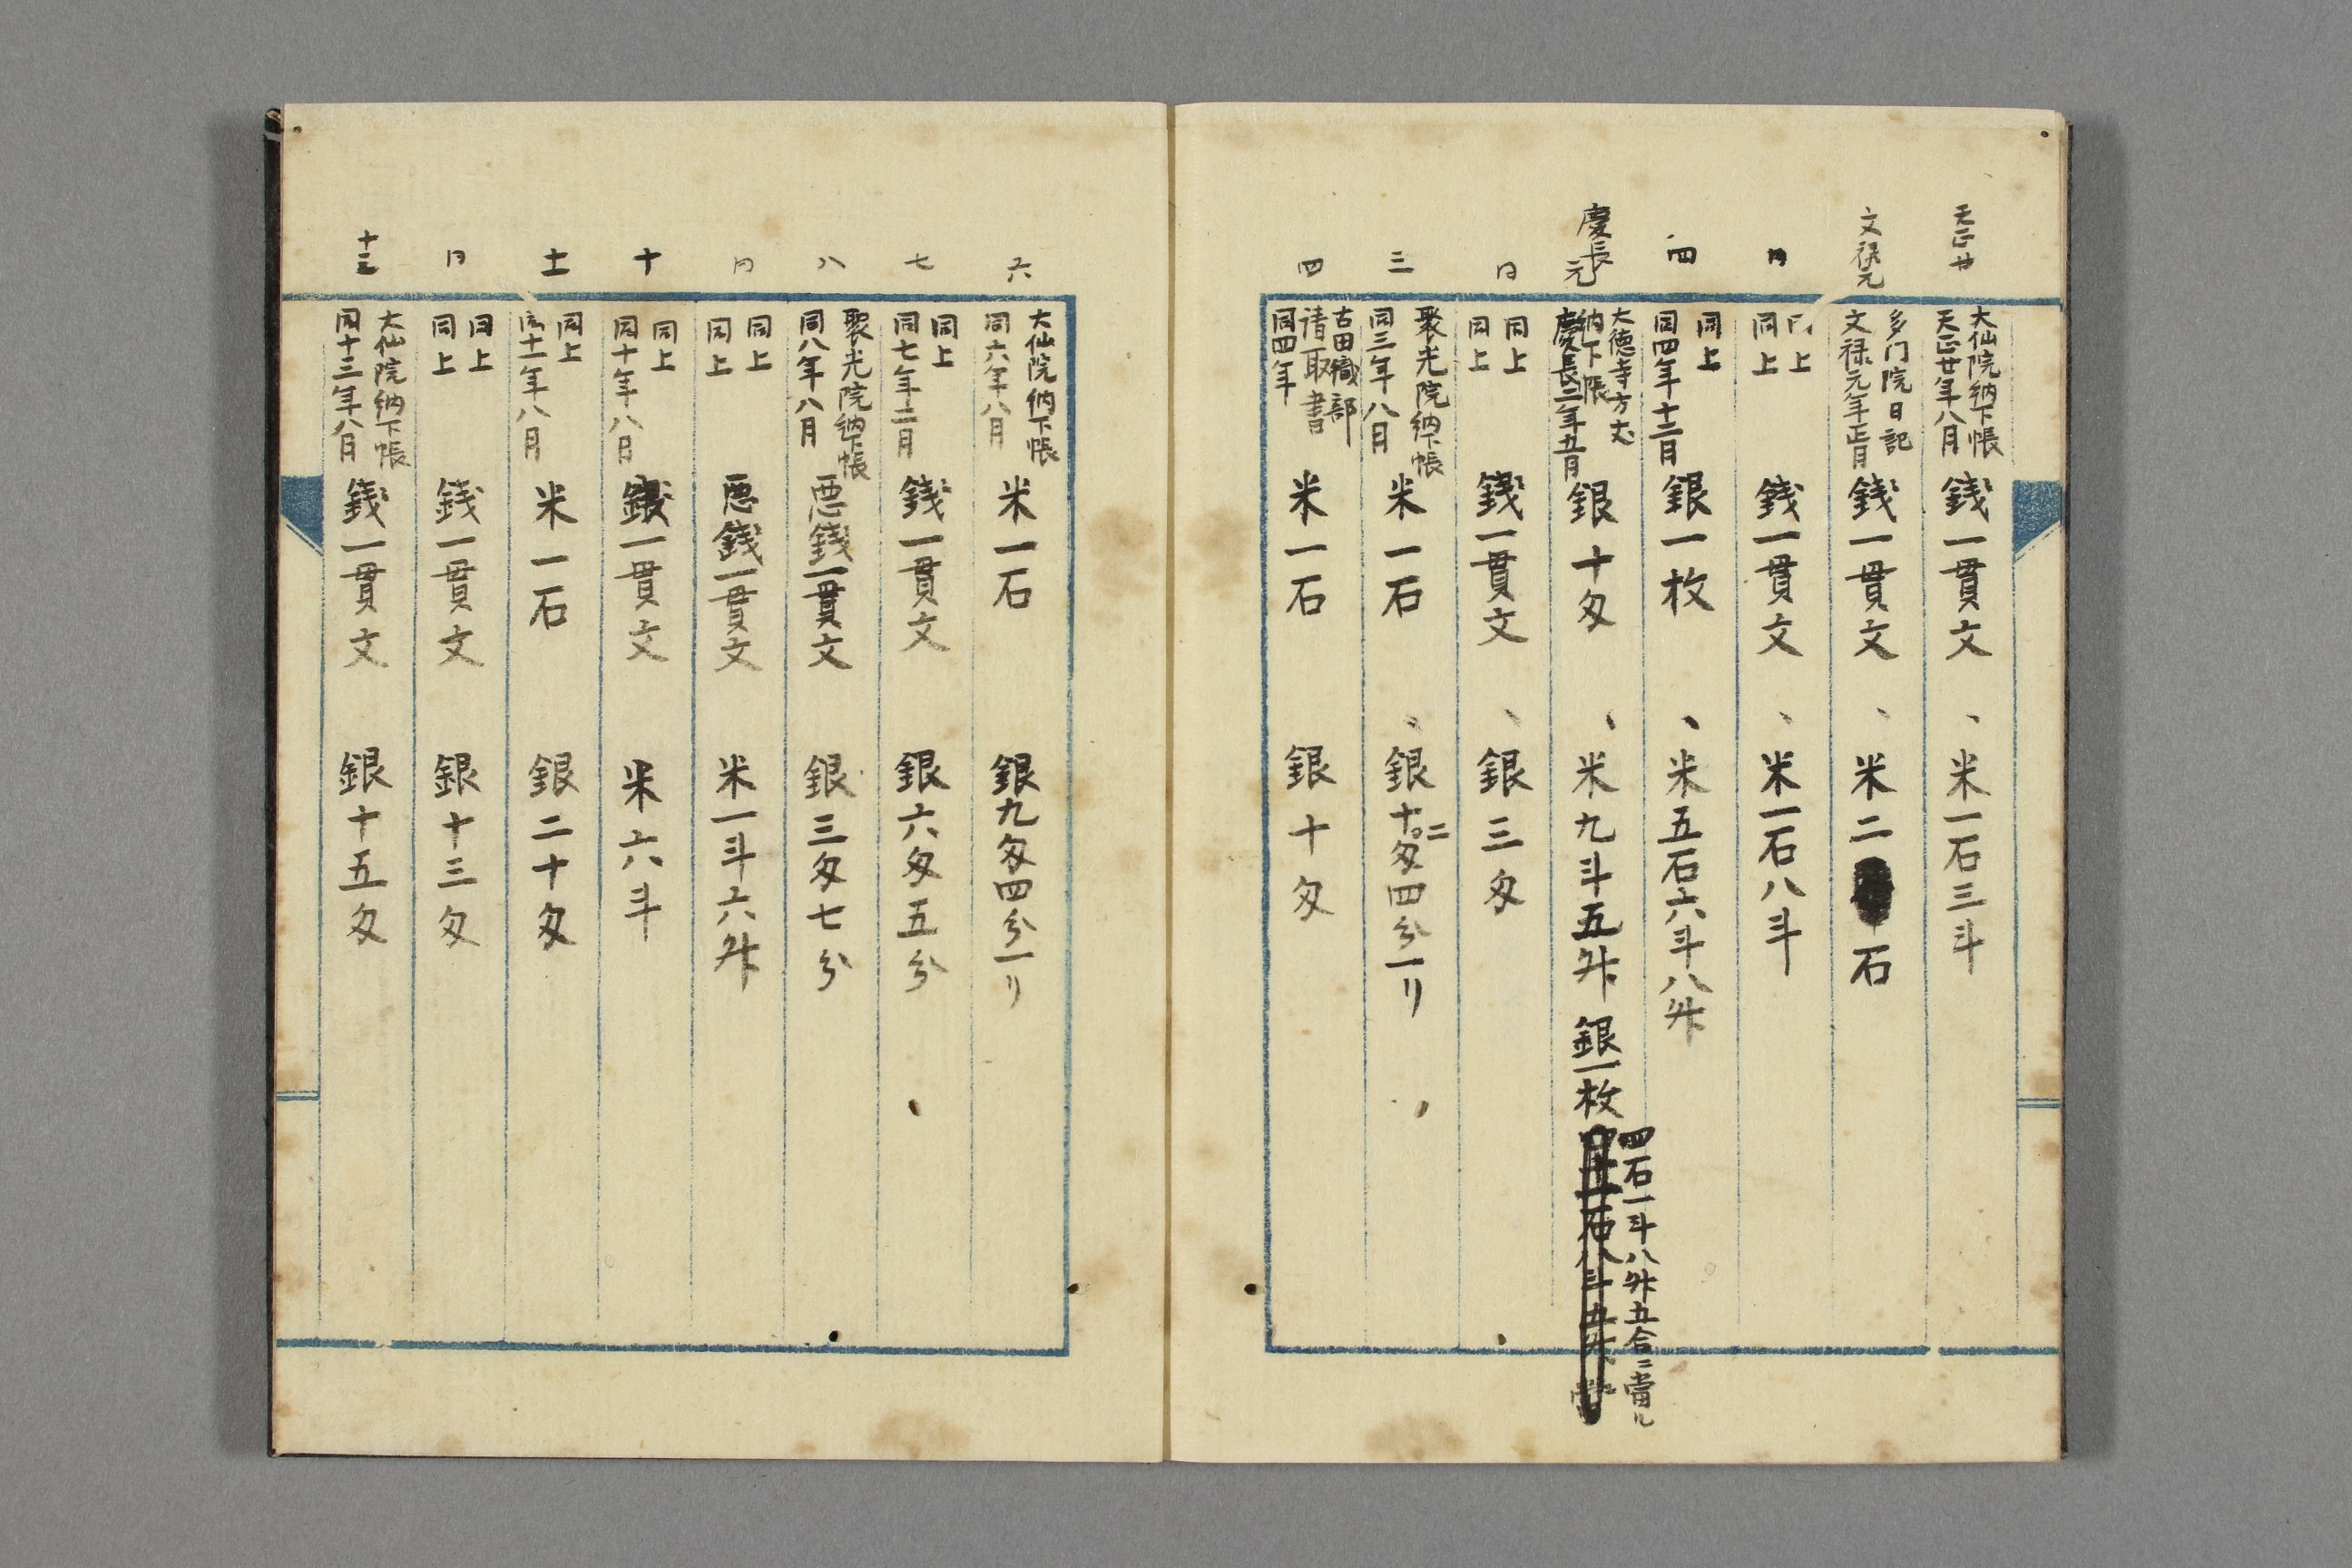 天正廿
大仙院納下帳
天正廿年八月
銭一貫文、米一石三斗
文禄元
多門院日記
文禄元年正月
銭一貫文、米二石
同
同上
同上
銭一貫文、米一石八斗
四
同上
同四年十二月
銀一枚、米五石六斗八升
慶長元
大徳寺方丈
納下帳
慶長二年五月
銀十匁、米九斗五升 銀一枚
四石一斗八升五合ニ当ル
同
同上
同上
銭一貫文、銀三匁
三
聚光院納下帳
同三年八月
米一石、銀十二匁四分一リ
四
古田織部
請取書
同四年
米一石 銀十匁
六
大仙院納下帳
同六年八月
米一石 銀九匁四分一リ
七
同上
同七年二月
銭一貫文 銀六匁五分
八
聚光院納下帳
同八年八月
悪銭一貫文 銀三匁七分
同
同上
同上
悪銭一貫文 米一斗六升
十
同上
同十年八月
銭一貫文 米六斗
十一
同上
同十一年八月
米一石 銀二十匁
同
同上
同上
銭一貫文 銀十三匁
十三
大仙院納下帳
同十三年八月
銭一貫文 銀十五匁